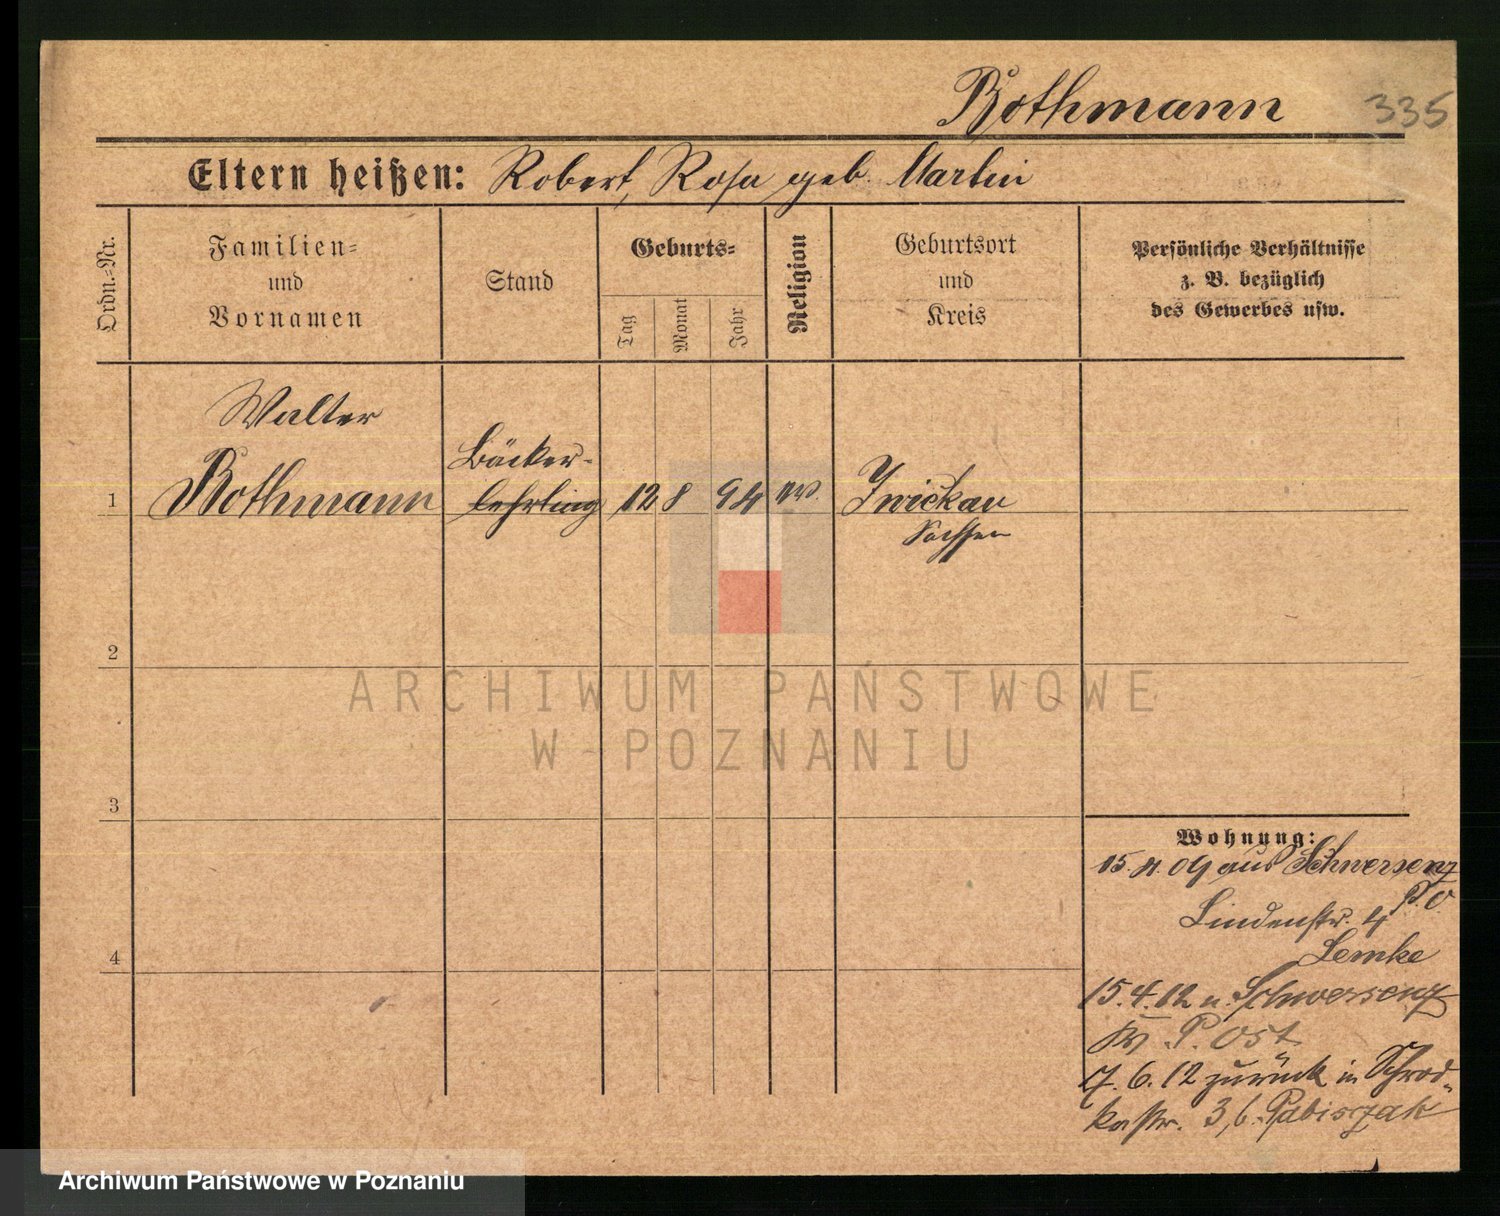 Rothmann 335
Eltern heißen: Robert, Rosa geb. Martin
Ordn.-Nr.
Familien-
und
Vornamen
Stand
Geburts-
Tag
Monat
Jahr
Religion
Geburtsort
und
Kreis
Persönliche Verhältnisse
z. B. bezüglich
des Gewerbes usw.
Walter
Bäcker-
1 Rothmann lehrling 12 8 94 ev. Zwickau
Sachsen
2
ARCHIWUM PAŃSTWOWE
W POZNANIU
3
Wohnung:
15.4.09 aus Schwersenz
P.O.
Lindenstr. 4
Lemke
4
15.4.12 n. Schwersenz
Kr. P. Ost
7.6.12 zurück in Schrod-
kastr. 3, b. Pabiszak
Archiwum Państwowe w Poznaniu